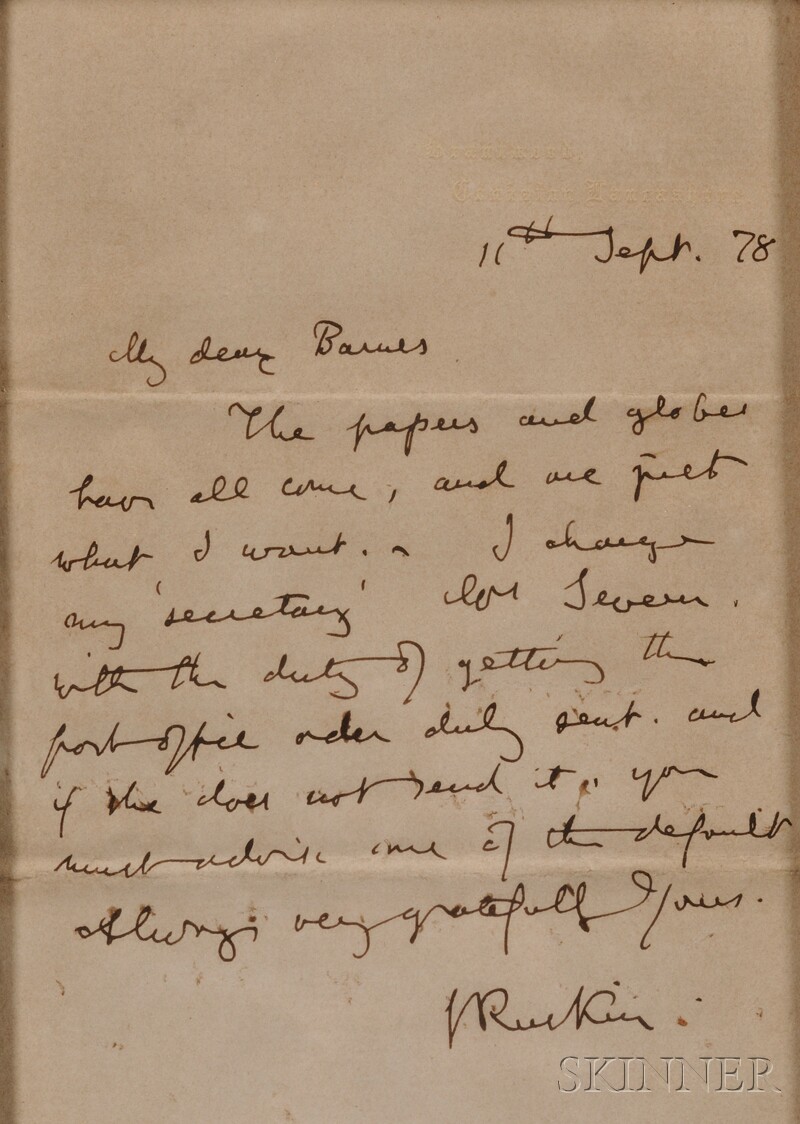 Brantwood,
Coniston, Lancashire.
11th Sept. 78
My dear Barnes
The papers and globes
have all come, and are just
what I want. - I charge
my 'secretary' Mrs Severn.
with the duty of getting the
post office order duly sent. and
if she does not send it, you
must advise me of the default
Always very gratefully Yours.
J Ruskin.
SKINNER